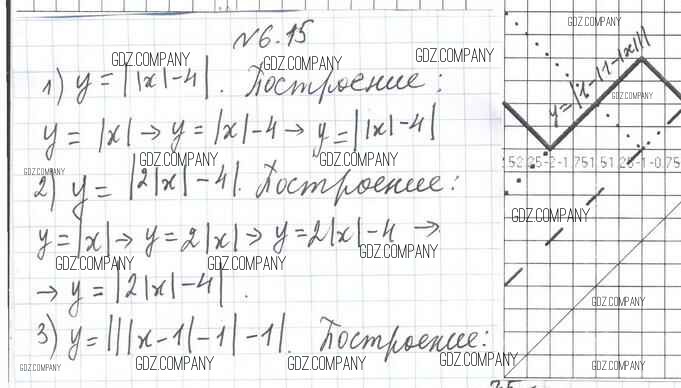 №6.15
1) y = ||x|-4|. Построение:
y = |x| → y = |x|-4 → y = ||x|-4|
2) y = |2|x|-4|. Построение:
y = |x| → y = 2|x| → y = 2|x|-4 →
→ y = |2|x|-4|.
3) y = |||x-1|-1|-1|. Построение:
GDZ.COMPANY
GDZ.COMPANY
GDZ.COMPANY
GDZ.COMPANY
GDZ.COMPANY
GDZ.COMPANY
GDZ.COMPANY
GDZ.COMPANY
GDZ.COMPANY
GDZ.COMPANY
GDZ.COMPANY
GDZ.COMPANY
GDZ.COMPANY
GDZ.COMPANY
GDZ.COMPANY
GDZ.COMPANY
GDZ.COMPANY
GDZ.COMPANY
GDZ.COMPANY